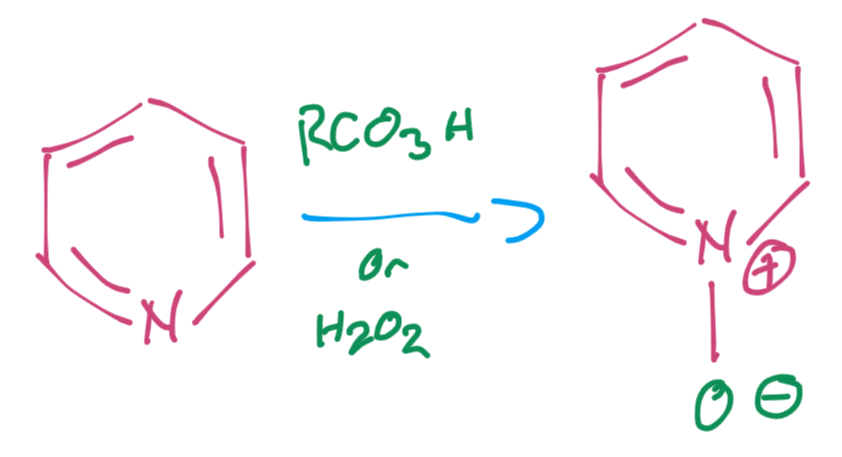 RCO3H
or
H2O2
N
N
⊕
O ⊖